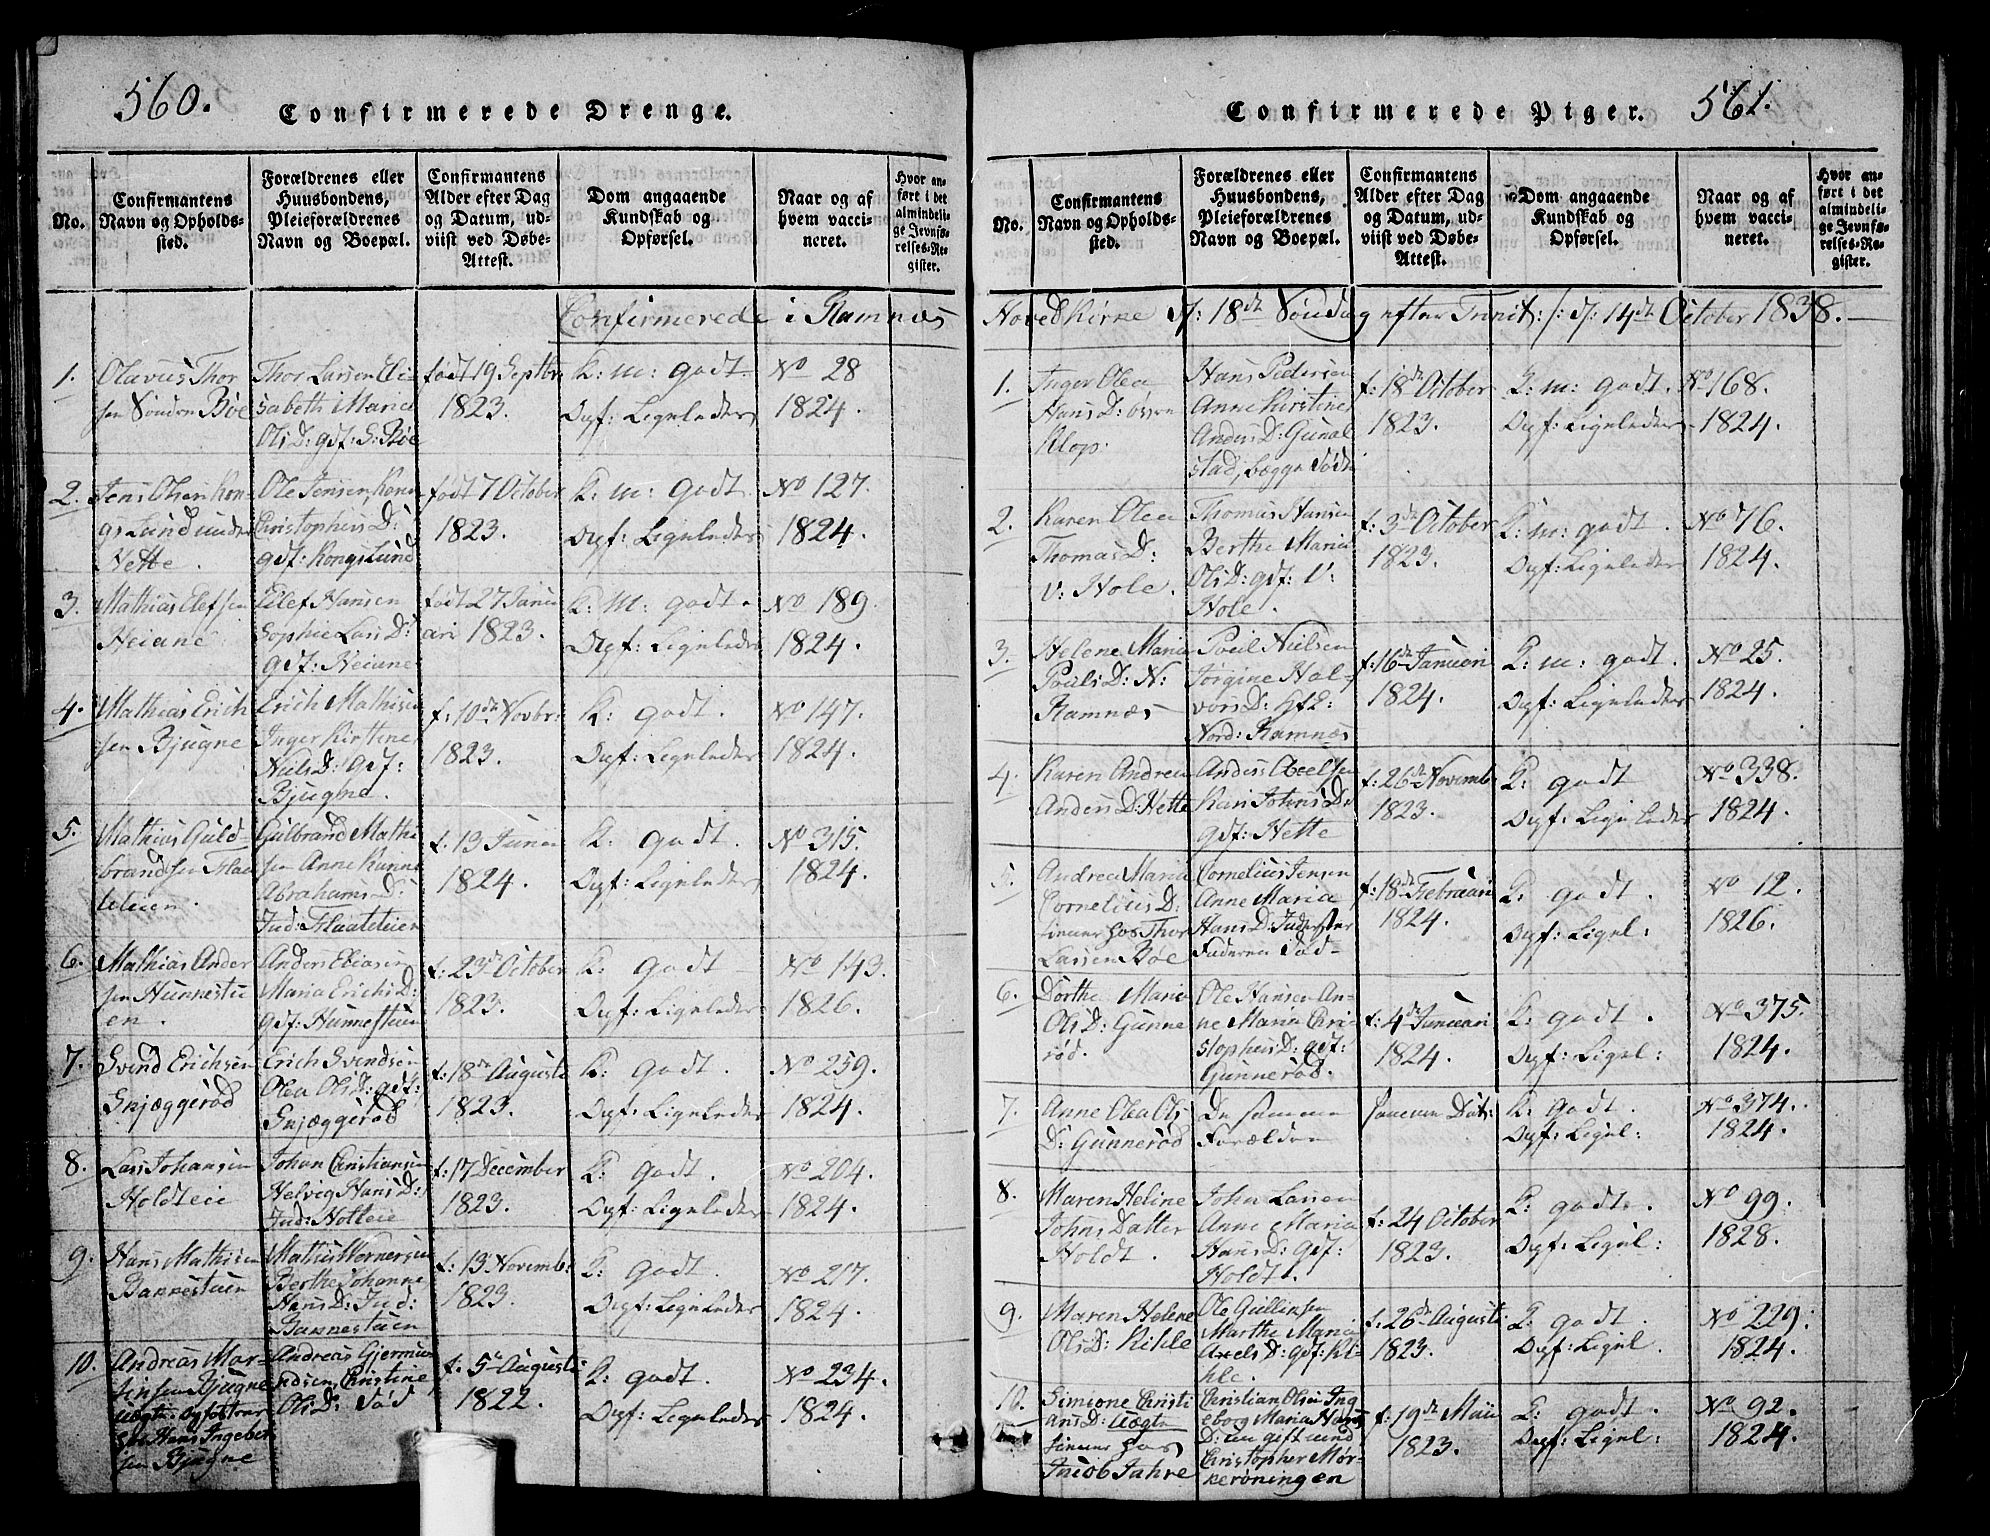 560.
Confirmerede Drenge.
No.
Confirmantens
Navn og Opholds-
sted.
Forældrenes eller
Huusbondens,
Pleieforældrenes
Navn og Boepæl.
Confirmantens
Alder efter Dag
og Datum, ud-
viist ved Døbe-
Attest.
Dom angaaende
Kundskab og
Opførsel.
Naar og af
hvem vacci-
neret.
Hvor an-
ført i det
almindeli-
ge Jevnfø-
relses-Re-
gister.
Confirmerede i Ramnæs
1.
Olavus Thor
sen Søndre Bøe
Thor Larsen Eli-
sabeth Maria
Olis D: gdf: S: Bøe
født 19 Septbr
1823.
K: m: godt.
Opf: Ligeledes
No 28
1824.
2.
Jens Olsen Kon-
gslund under
Hette.
Ole Jensen, Karen
Christophers D:
gdf: Kongslund
født 7 October
1823.
K: m: godt.
Opf: Ligeledes
No 127.
1824.
3.
Mathias Elefsen
Heiane
Eilef Hansen
Sophie Lars D:
gdf: Heiane
født 27 Janu
ari 1823.
K: m: godt.
Opf: Ligeledes
No 189.
1824.
4.
Mathias Erich
sen Bjugne
Erich Mathisen
Inger Kirstine
Niels D: gdf:
Bjugne.
f: 10de Novbr:
1823.
K: godt.
Opf: Ligeledes
No 147.
1824.
5.
Mathias Guld-
brandsen Flaa
teteien.
Gulbrand Mathi
sen Anne Karine
Abrahams D:
Ind: Flaateteien
f. 13 Junii
1824.
K: godt.
Opf: Ligeledes
No 315.
1824.
6.
Mathias Ander
sen Hunnestu
en.
Anders Eliasen
Maria Erichs D:
gdf: Hunnestuen
f: 23de October
1823.
K: godt
Opf: Ligeledes
No 143.
1826.
7.
Svend Erichsen
Snjæggerød
Erich Svendsen
Olea Olis D: gdf:
Snjæggerød
f: 18de Augusti
1823.
K: godt.
Opf: Ligeledes
No 259.
1824.
8.
Lars Johansen
Holdteie
Johan Christiansen
Helvig Hans D:
Ind: Holteie
f: 17 December
1823.
K: godt.
Opf: Ligeledes
No 204.
1824.
9.
Hans Mathisen
Bakkestuen
Mathis Wernersen
Berthe Johanne
Hans D: Ind:
Bakkestuen
f: 13 Novemb:
1823.
K: godt.
Opf: Ligeledes
No 217.
1824.
10.
Andreas Mar-
Bjugne
hos Hans Ingebret
sen Bjugne
Andreas Gjermun
dsen, Christine
Olis D: død
f. 5te Augusti
1822.
K: godt.
Opf: Ligeledes
No 234.
1824.
Confirmerede Piger.
561.
No.
Confirmantens
Navn og Opholds-
sted.
Forældrenes eller
Huusbondens,
Pleieforældrenes
Navn og Boepæl.
Confirmantens
Alder efter Dag
og Datum, ud-
viist ved Døbe-
Attest.
Dom angaaende
Kundskab og
Opførsel.
Naar og af
hvem vacci-
neret.
Hvor an-
ført i det
almindeli-
ge Jevnfø-
relses-Re-
gister.
Hovedkirke d: 18de Søndag efter Trinit: /: d: 14de October 1838.
1.
Inger Olea
Hans D: øvre
Klop.
Hans Pedersen
Anne Kirstine
Anders D: Gunal
stad, begge døde
f: 18de October
1823.
K: m: godt.
Opf: Ligeledes
No 168.
1824.
2.
Karen Olea
Thomas D:
V: Hole.
Thomas Hansen
Berthe Maria
Olis D: gdf: V:
Hole.
f: 3de October
1823.
K: m: godt.
Opf: Ligeledes
No 76.
1824.
3.
Helene Maria
Pouls D: N:
Ramnæs
Poul Nielsen
Jørgine Hal-
vors D:
Nord: Ramnæs
f: 16de Januari
1824.
K: m: godt.
Opf: Ligeledes
No 25.
1824.
4.
Karen Andrea
Anders D: Hette
Anders Abelsen
Kari Johns D:
gdf: Hette
f: 26de Novemb
1823.
K: godt
Opf: Ligeledes
No 338.
1824.
5.
Andrea Maria
Cornelius D:
tiener hos Thor
Larsen Bøe
Cornelius Jensen
Anne Maria
Hans D:
Faderen død
f: 18de Februari
1824.
K: godt.
Opf: Ligel:
No 12.
1826.
6.
Dorthe Maria
Olis D: Gunne
rød.
Ole Hansen An-
ne Maria Chri-
stophers D: gdf:
Gunnerød.
f: 4de Januari
1824.
K: godt.
Opf: Ligel:
No 375.
1824.
7.
Anne Olea Olis
D: Gunnerød
De samme
Forældre
samme Dat:
K: godt.
Opf: Ligel:
No 374.
1824.
8.
Maren Heline
Johns Datter
Holdt.
John Larsen
Anne Maria
Hans D: gdf:
Holdt.
f: 24 October
1823.
K: godt.
Opf: Ligel:
No 99.
1828.
9.
Maren Helene
Olis D: Kihle
Ole Gullinsen
Marthe Maria
Axels D: gdf: Ki-
hle.
f: 26de Augusti
1823.
K: godt.
Opf: Ligel.
No 229.
1824.
10.
Simione Christi
ans D: uægte
tiener hos
Jacob Jahre
Christian Olsen Ing
eborg Maria Hans
D: un gift und
Christopher Mør-
kerøningen
f: 19de Maii
1823.
K: godt.
Opf: Ligel:
No 92.
1824.